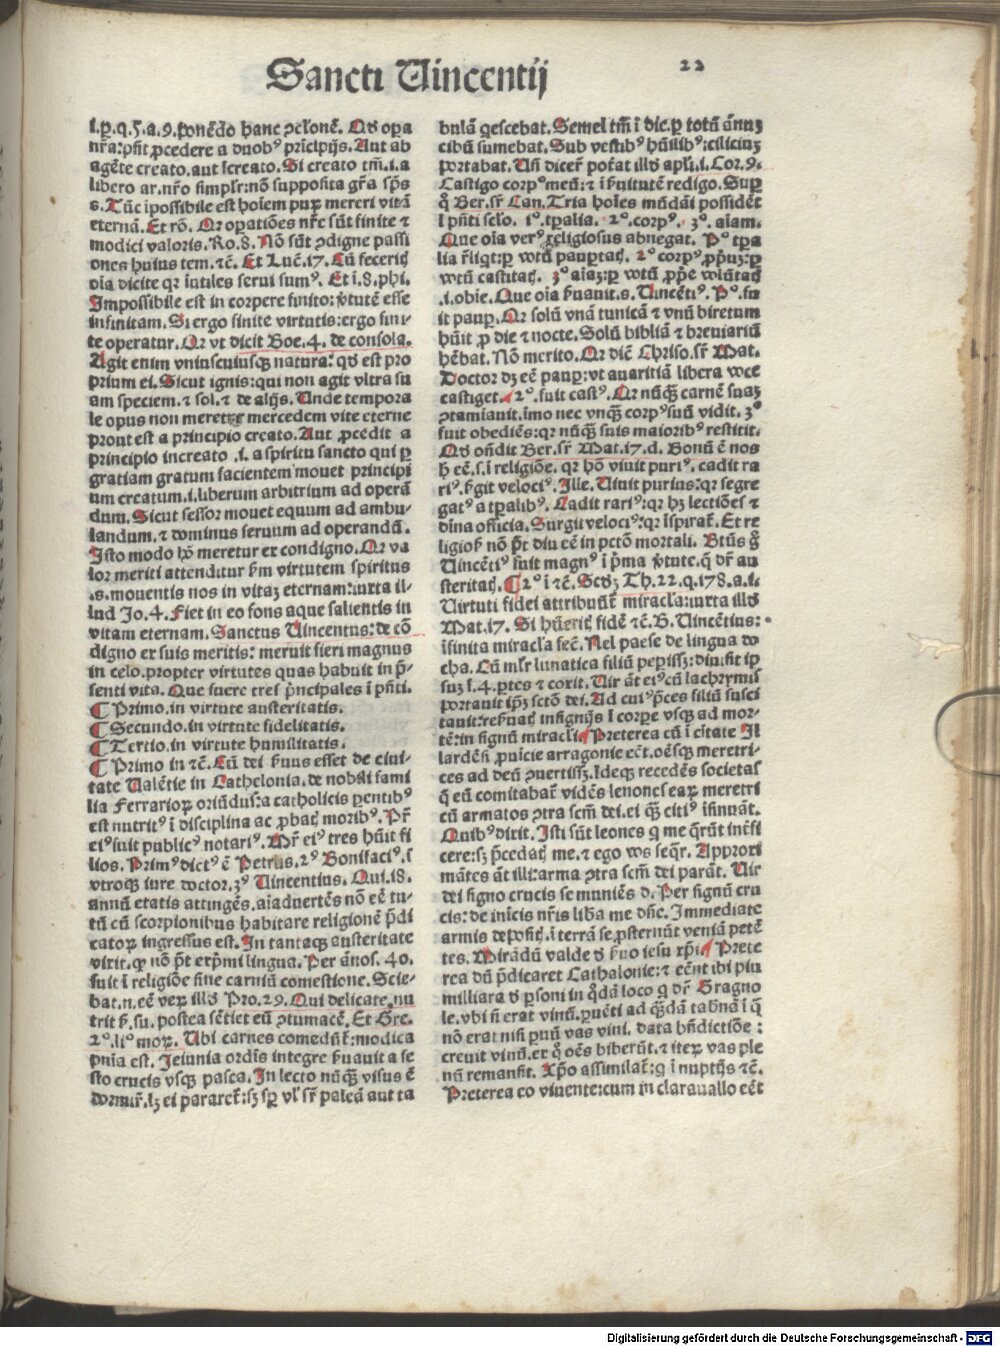 Sancti Uincentij
22
i.p.q.5.a.9.ponēdo hanc ɔclonē. Qd opa
nr̄a:pn̄t ꝓcedere a duobꝰ prīcipijs. Aut ab
agēte creato.aut īcreato. Si creato tm̄.i.a
libero ar.nr̄o simplr̄:nō supposita gr̄a sp̄s
s. Tūc īpossibile est hoīem puꝝ mereri vitā
eternā. Et rō. Qr opatiōes nr̄e sūt finite ⁊
modici valoris. Ro.8. Nō sūt ɔdigne passi
ones huius tem.⁊c̄. Et Luc̄.17. Cū feceritꝭ
oīa dicite qr inutiles serui sumꝰ. Et ī.8.phi.
Impossibile est in corpere finito: v̄tutē esse
infinitam. Si ergo finite virtutis:ergo fini⸗
te operatur. Qr vt dicit Boe.4. de consola.
Agit enim vniuscuiusqꝫ natura: qd est pro
prium ei. Sicut ignis:qui non agit vltra su
am speciem.⁊ sol.⁊ de alijs. Unde tempora
le opus non meretur mercedem vite eterne
prout est a principio creato. Aut ꝓcedit a
principio increato .i. a spiritu sancto qui ꝑ
gratiam gratum facientem mouet principi
um creatum.i.liberum arbitrium ad operā
dum. Sicut sessor mouet equum ad ambu⸗
landum.⁊ dominus seruum ad operandū.
Isto modo hō meretur ex condigno. Qr va
lor meriti attenditur ẜm virtutem spiritus
.s. mouentis nos in vitaꝫ eternam:iuxta il⸗
lud Jo.4. Fiet in eo fons aque salientis in
vitam eternam. Sanctus Uincentus: de cō
digno ex suis meritis: meruit fieri magnus
in celo.propter virtutes quas habuit in p̄⸗
senti vita. Que fuere tres p̄ncipales ī pn̄ti.
¶ Primo.in virtute austeritatis.
¶ Secundo.in virtute fidelitatis.
¶ Tertio.in virtute humilitatis.
¶ Primo in ⁊c̄. Cū dei ẜuus esset de ciui⸗
tate Ualētie in Cathelonia.de nobili fami
lia Ferrarioꝝ oriūdus:a catholicis parentibꝰ
est nutritꝰ ī disciplina ac ꝓbatꝭ moribꝰ. Pr̄
eiꝰ fuit publicꝰ notariꝰ. Mr̄ eiꝰ tres hūit fi
lios. Primꝰ dictꝰ ē Petrus.2ꝰ Bonifaciꝰ.ī
vtroqꝫ iure doctor.3ꝰ Uincentius. Qui.18.
annū etatis attingēs.aīaduertēs nō eē tu⸗
tū cū scorpionibus habitare religionē p̄di
catoꝝ ingressus est. In tantaqꝫ austeritate
vixit.qꝙ nō pt̄ exp̄mi lingua. Per ānos.40.
fuit ī religiōe sine carniū comestione. Scie⸗
bat.n.eē veꝝ illd Pro.29. Qui delicate.nu
trit ẜ.su. postea sētiet eū ɔtumacē. Et Gre.
2º.liº moꝝ. Ubi carnes comedūt̄:modica
pn̄ia est. Jeiunia ordīs integre ẜuauit a fe
sto crucis vsqꝫ pasca. In lecto nūqꝫ visus ē
dormir̄.lꝫ ei pararet̄:sꝫ sꝑ vl̄ sr̄ paleā aut ta
bulā qescebat. Semel tm̄ ī die.ꝑ totū ānuꝫ
cibū sumebat. Sub vestibꝰ hūilibꝰ:ciliciuꝫ
portabat. Un̄ dicer̄ potat illd apl̄i.i.Cor.9.
Castigo corpꝰ meū:⁊ ī ẜuitutē redigo. Suꝑ
qꝫ Ber.sr̄ Can. Tria hoīes mūdāi possidēt
ī pn̄ti sclo. 1º.tꝑalia. 2º.corpꝰ. 3º.aīam.
Que oīa verꝰ religiosus abnegat. Pº tꝑa
lia r̄liqt:ꝑ votū pauꝑtatꝭ. 2º corpꝰ ꝓpriuꝫ:ꝑ
votū castitatꝭ. 3º aīaꝫ:ꝑ votū ꝓp̄e volūtatꝭ
.i.obīe. Que oīa ẜuauit.s. Uincētiꝰ. Pº.fu
it pauꝑ. Qr solū vnā tunicā ⁊ vnū biretum
hūit ꝓ die ⁊ nocte. Solū bibliā ⁊ breuiariū
hēbat. Nō merito. Qr dic̄ Chriso.sr̄ Mat.
Doctor dꝫ eē pauꝑ: vt auaritiā libera voce
castiget. 2º.fuit castꝰ. Qr nūqꝫ carnē suaꝫ
ɔtamīauit.īmo nec vnqꝫ corpꝰ suū vidit. 3º
fuit obediēs:qr nūqꝫ suis maioribꝰ restitit.
Qd on̄dit Ber. sr̄ Mat.17.d. Bonū ē nos
h̄ eē.s.ī religiōe. qr hō viuit puriꝰ. cadit ra
riꝰ.ẜgit velociꝰ. Ille. Uiuit purius:qr segre
gatꝰ a tꝑalibꝰ. Cadit rariꝰ:qr hꝫ lectiōes ⁊
diīna officia. Surgit velociꝰ:qr īspirat̄. Et re
ligiosꝰ nō pt̄ diu eē in pctō mortali. Btūs g̊
Uincētiꝰ fuit magnꝰ ī p̄ma v̄tute.q dr̄ au
steritatꝭ. ¶ 2º ī ⁊c̄. Scdꝫ Th.22.q.178.a.i.
Uirtuti fidei attribuūt̄ miracla:iuxta illd
Mat.17. Si hūeritꝭ fidē ⁊c̄. B. Uincētius:
īfinita miracla fec̄. Nel paese de lingua do
cha. Cū ml̄r lunatica filiū peꝑissꝫ:diuisit ip
suꝫ ī.4.ꝑtes ⁊ coxit. Uir āt eiꝰ cū lachrymis
portauit ip̄ꝫ sctō dei. Ad cuiꝰ p̄ces filiū susci
tauit:reẜuatꝭ insignijs ī corpe vsqꝫ ad mor⸗
tē:in signū miracli. Preterea cū ī ciuitate Il
lardēn ꝓuīcie arragonie eēt.oēsqꝫ meretri⸗
ces ad deū ɔuertissꝫ.Ideqꝫ recedēs societas
q̄ eū comitabat̄ vidēs lenones eaꝝ meretri
cū armatos ɔtra scm̄ dei.ei qꝫ citiꝰ īsinuāt.
Quibꝰ dixit. Isti sūt leones q me q̄rūt īterfi
cere:sꝫ p̄cedatꝭ me.⁊ ego vos seqr. Approxi
mātes āt illi:arma ɔtra scm̄ dei parāt. Uir
dei signo crucis se muniēs d. Per signū cru
cis: de inīcis nr̄is liƀa me dn̄e. Immediate
armis depositꝭ.ī terrā se ꝓsternūt veniā petē
tes. Mirādū valde d ẜuo iesu xp̄i. Prete
rea dū p̄dicaret Cathalonie:⁊ eēnt ibi plu
milliara d ꝑsoni in qdā loco q dr̄ Gragno
le.vbi n̄ erat vinū.puēti ad qꝫdā tabnā ī q̄
nō erat nisi ꝑuū vas vini. data bn̄dictiōe:
creuit vinū.ex q̊ oēs biberūt.⁊ iteꝝ vas ple
nū remansit. Xpō assimilat̄: q ī nuptijs ⁊c̄.
Preterea eo viuente:cum in claraualle eēt
Digitalisierung gefördert durch die Deutsche Forschungsgemeinschaft - DFG